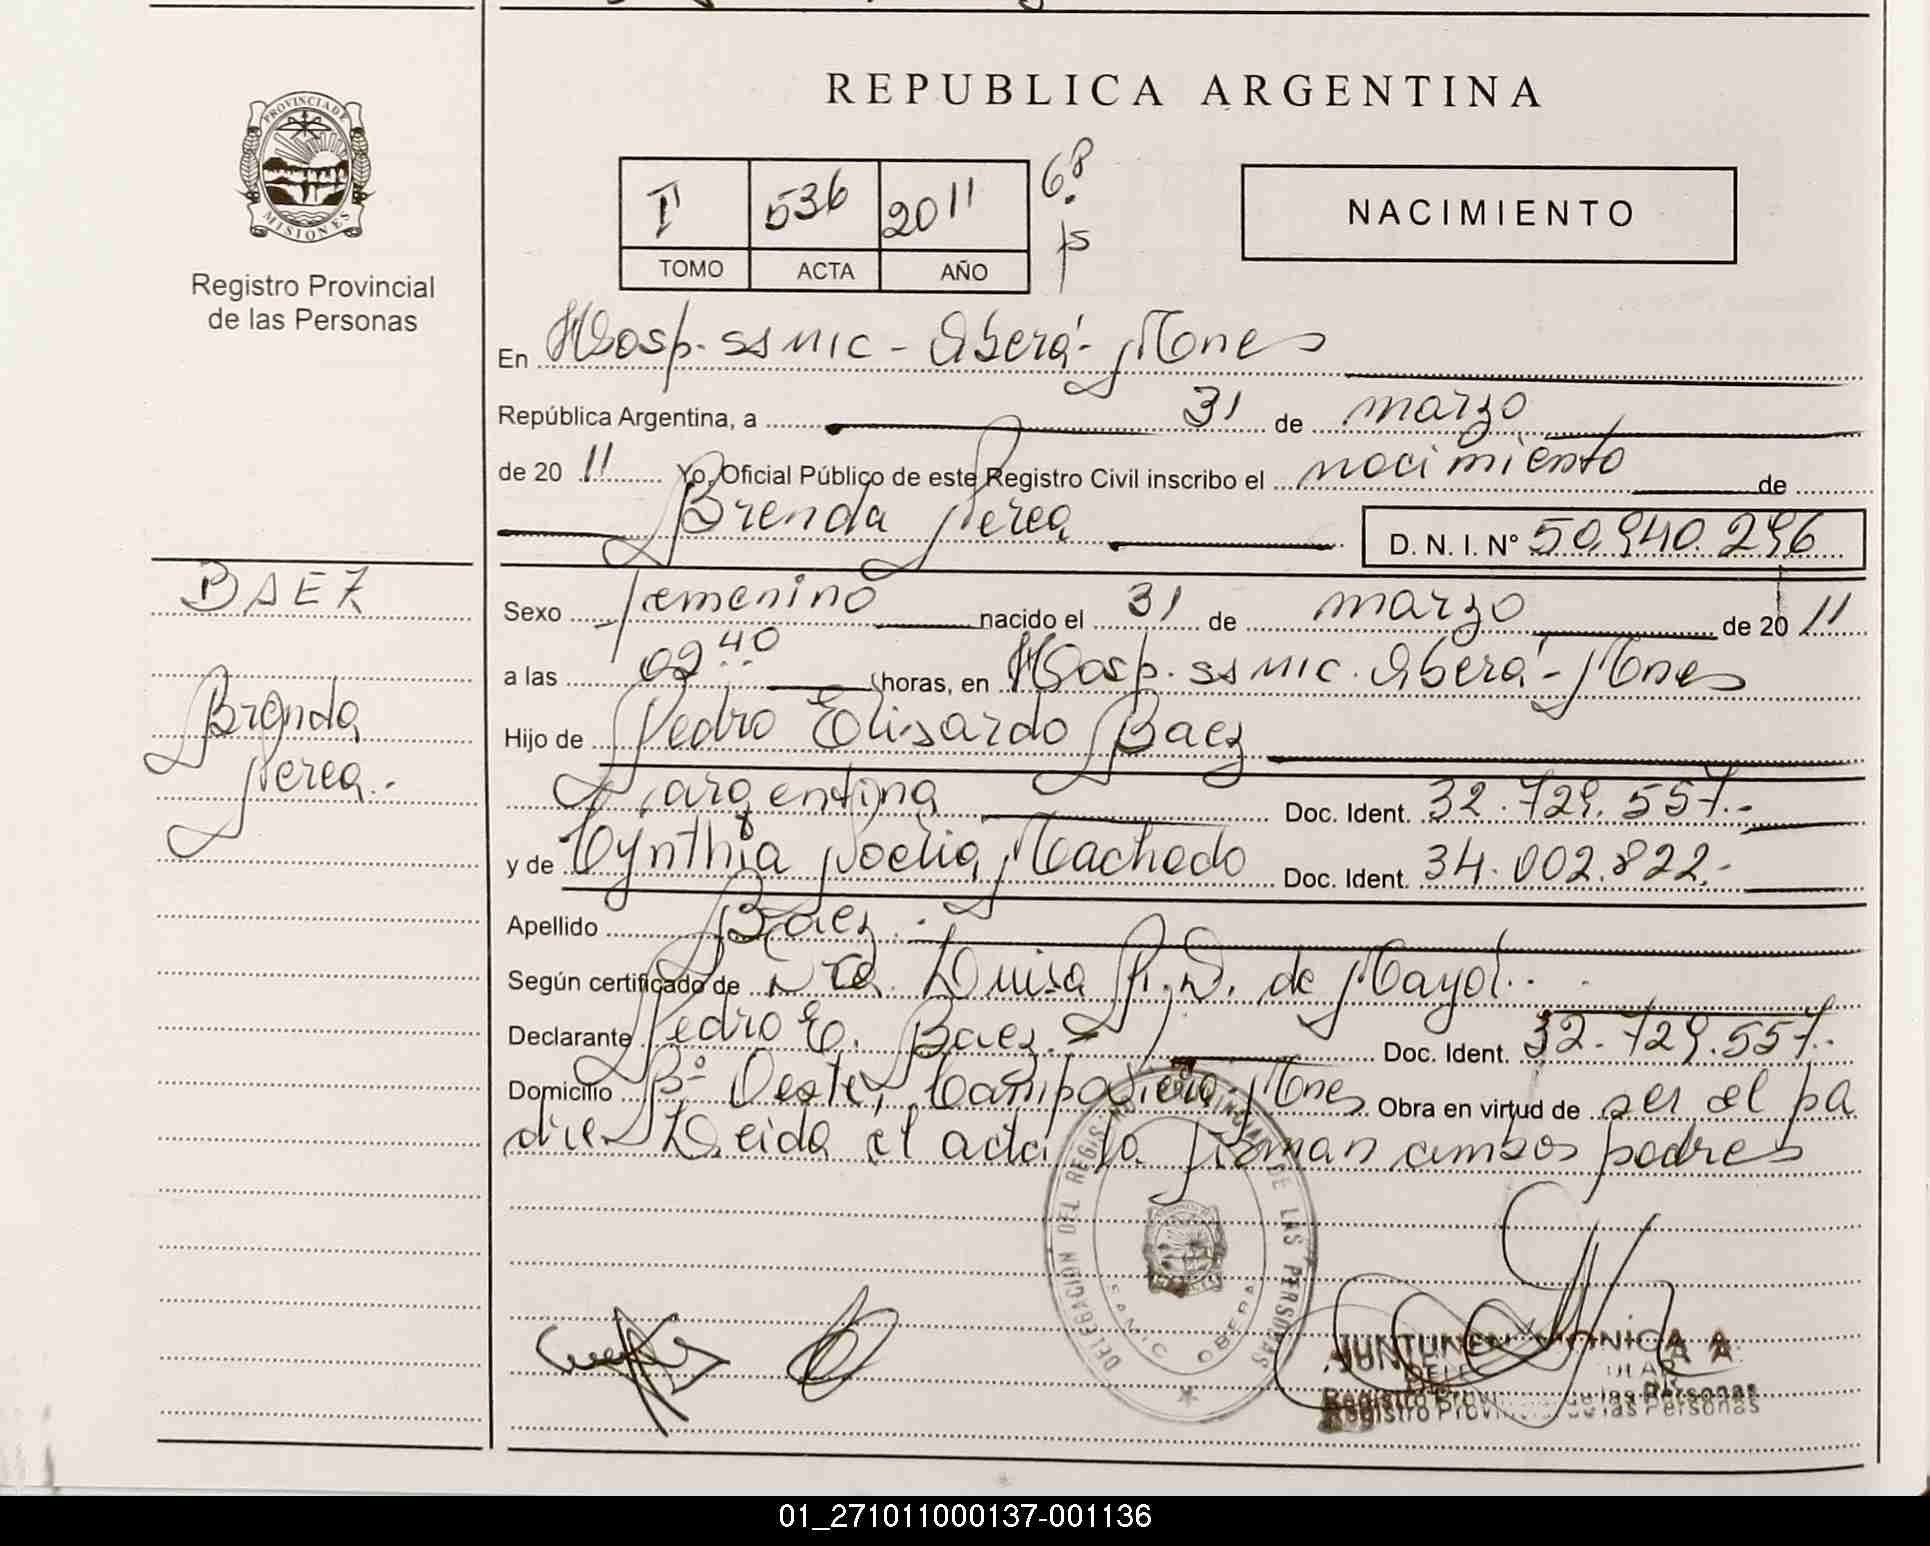 REPUBLICA ARGENTINA
PROVINCIA DE
MISIONES
Registro Provincial
de las Personas
I 536 2011 68
TOMO ACTA AÑO
NACIMIENTO
En Hosp. SSMIC - Oberá - Mones
República Argentina, a 31 de marzo
de 20 11 Yo, Oficial Público de este Registro Civil inscribo el nacimiento de
Brenda Perea D. N. I. N° 50.940.296
BAEZ
Brenda
Perea.-
Sexo femenino nacido el 31 de marzo de 20 11
a las 02 40 horas, en Hosp. SSMIC. Oberá - Mones
Hijo de Pedro Elisardo Baez
argentina Doc. Ident. 32.729.557.-
y de Cynthia Noelia Machado Doc. Ident. 34.002.822.-
Apellido Baez.
Según certificado de Dra. Luisa de Mayol.
Declarante Pedro E. Baez.- Doc. Ident. 32.729.557.
Domicilio Bº Oeste, Campo Viera - Mones Obra en virtud de ser el pa
dre. Leida el acta, la firman ambos padres
DELEGACIÓN DEL REGISTRO PROVINCIAL DE LAS PERSONAS
SAMIC OBERA
JUNTUNEN MONICA A
Registro Provincial de las Personas
01_271011000137-001136